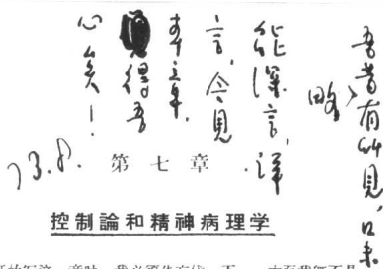 吾昔有所見,口未
略
能深言,詳
言,今見
本章,
得吾
心矣!
73.8.
第七章
控制論和精神病理學